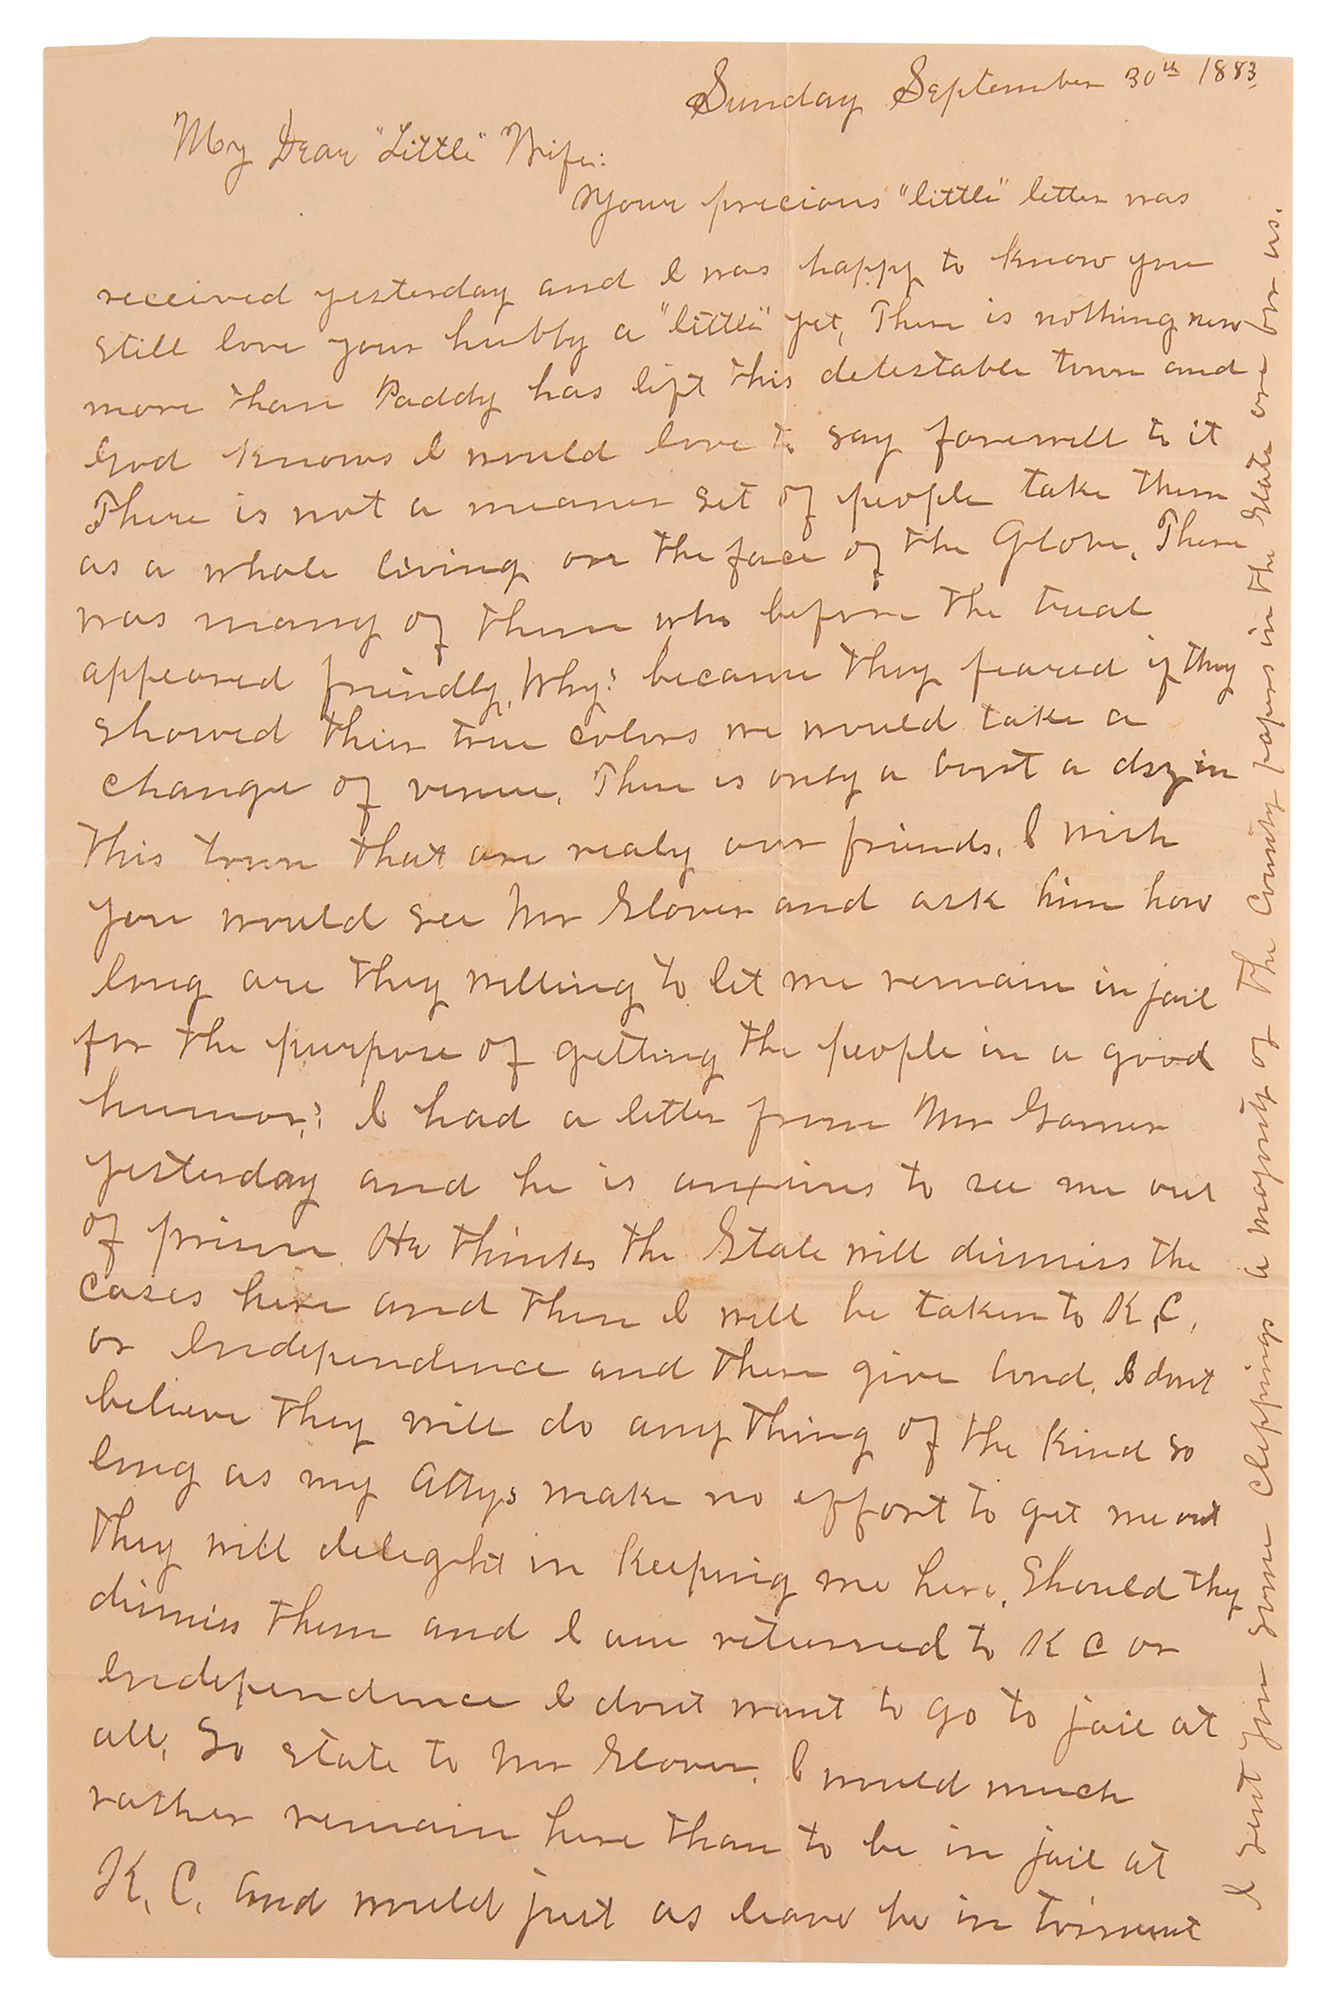 Sunday September 30th 1883.
My Dear "Little" Wife:
Your precious "little" letter was
received yesterday and I was happy to know you
still love your hubby a "little" yet, There is nothing new
more than Paddy has left this detestable town and
God knows I would love to say farewell to it
There is not a meaner set of people take them
as a whole living on the face of the Globe. There
was many of them who before the trial
appeared friendly, Why? because they feared if they
showed their true colors we would take a
change of venue. There is only a bout a dozin
this town that are realy our friends. I wish
you would see Mr Glover and ask him how
long are they willing to let me remain in jail
for the purpose of getting the people in a good
humor? I had a letter from Mr Garner
yesterday and he is anxious to see me out
of prison He thinks the State will dismiss the
cases here and then I will be taken to K.C.
or Independence and then give bond. I dont
believe they will do any thing of the kind so
long as my Attys make no effort to get me out
They will delight in keeping me here. Should they
dismiss them and I am returned to K C or
Independence I dont want to go to jail at
all, So state to Mr Glover. I would much
rather remain here than to be in jail at
K. C. and would just as leave be in torment
I sent you some clippings a majority of the County papers in the State are for us.